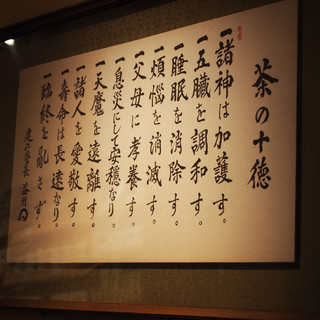 茶の十徳
一諸神は加護す。
一五臓を調和す。
一睡眠を消除す。
一煩悩を消滅す。
一父母に孝養す。
一息災にして安穏なり
一天魔を遠離す。
一諸人を愛敬す。
一寿命は長遠なり。
一臨終を乱さず。